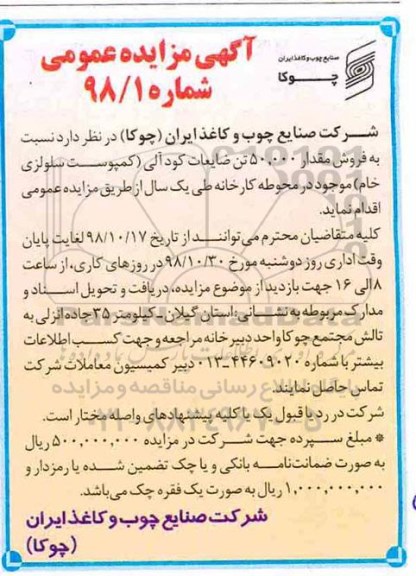 آگهی مزایده عمومی
شماره ۹۸/۱
صنایع چوب و کاغذ ایران
چوکا
شرکت صنایع چوب و کاغذ ایران (چوکا) در نظر دارد نسبت
به فروش مقدار ۵۰,۰۰۰ تن ضایعات کود آلی (کمپوست سلولزی
خام) موجود در محوطه کارخانه طی یک سال از طریق مزایده عمومی
اقدام نماید.
کلیه متقاضیان محترم می‌توانند از تاریخ ۹۸/۱۰/۱۷ لغایت پایان
وقت اداری روز دوشنبه مورخ ۹۸/۱۰/۳۰ در روزهای کاری، از ساعت
۸ الی ۱۶ جهت بازدید از موضوع مزایده، دریافت و تحویل اسناد و
مدارک مربوطه به نشانی: استان گیلان - کیلومتر ۳۵ جاده انزلی به
تالش مجتمع چوکا واحد دبیرخانه مراجعه و جهت کسب اطلاعات
بیشتر با شماره ۴۴۶۰۹۰۲۰-۰۱۳ دبیر کمیسیون معاملات شرکت
تماس حاصل نمایند.
شرکت در رد یا قبول یک یا کلیه پیشنهادهای واصله مختار است.
* مبلغ سپرده جهت شرکت در مزایده ۵۰۰,۰۰۰,۰۰۰ ریال
به صورت ضمانت‌نامه بانکی و یا چک تضمین شده یا رمزدار و
۱,۰۰۰,۰۰۰,۰۰۰ ریال به صورت یک فقره چک می‌باشد.
شرکت صنایع چوب و کاغذ ایران
(چوکا)